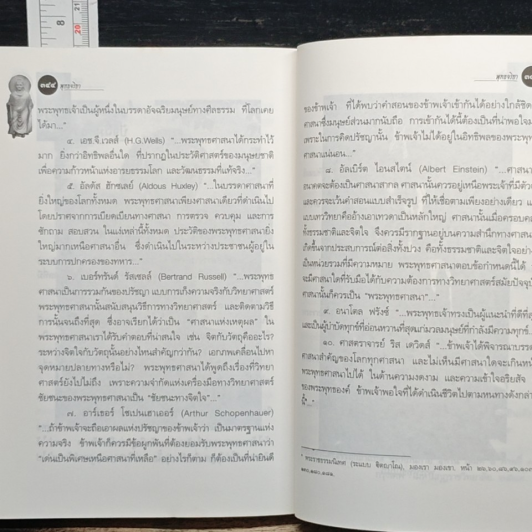 ๓๔๔
พระพุทธเจ้าเป็นผู้หนึ่งในบรรดาอัจฉริยมนุษย์ทางศีลธรรม ที่โลกเคย
ได้มา..."
๔. เอช.จี.เวลส์ (H.G.Wells) "...พระพุทธศาสนาได้กระทำไว้
มาก ยิ่งกว่าอิทธิพลอื่นใด ที่ปรากฏในประวัติศาสตร์ของมนุษยชาติ
เพื่อความก้าวหน้าแห่งอารยธรรมโลก และวัฒนธรรมที่แท้จริง..."
๕. อัลดัส ฮักซเลย์ (Aldous Huxley) "...ในบรรดาศาสนาที่
ยิ่งใหญ่ของโลกทั้งหมด พระพุทธศาสนาเพียงศาสนาเดียวที่ดำเนินไป
โดยปราศจากการเบียดเบียนทางศาสนา การตรวจ ควบคุม และการ
ซักถาม สอบสวน ในแง่เหล่านี้ทั้งหมด ประวัติของพระพุทธศาสนายิ่ง
ใหญ่มากเหนือศาสนาอื่น ซึ่งดำเนินไปในระหว่างประชาชนผู้อยู่ใน
ระบบการปกครองของทหาร..."
๖. เบอร์ทรันด์ รัสเซลล์ (Bertrand Russell) "...พระพุทธ
ศาสนาเป็นการรวมกันของปรัชญา แบบการเก็งความจริงกับวิทยาศาสตร์
พระพุทธศาสนานั้นสนับสนุนวิธีการทางวิทยาศาสตร์ และติดตามวิธี
การนั้นจนถึงที่สุด ซึ่งอาจเรียกได้ว่าเป็น "ศาสนาแห่งเหตุผล" ใน
พระพุทธศาสนาเราได้รับคำตอบที่น่าสนใจ เช่น จิตกับวัตถุคืออะไร?
ระหว่างจิตกับวัตถุนั้นอย่างไหนสำคัญกว่ากัน? เอกภพเคลื่อนไปหา
จุดหมายปลายทางหรือไม่? พระพุทธศาสนาได้พูดถึงเรื่องที่วิทยา
ศาสตร์ยังไปไม่ถึง เพราะความจำกัดแห่งเครื่องมือทางวิทยาศาสตร์
ชัยชนะของพระพุทธศาสนาเป็น "ชัยชนะทางจิตใจ"..."
๗. อาร์เธอร์ โชเปนเฮาเออร์ (Arthur Schopenhauer)
"...ถ้าข้าพเจ้าจะถือเอาผลแห่งปรัชญาของข้าพเจ้าว่า เป็นมาตรฐานแห่ง
ความจริง ข้าพเจ้าก็ควรมีข้อผูกพันที่ต้องยอมรับพระพุทธศาสนาว่า
"เด่นเป็นพิเศษเหนือศาสนาที่เหลือ" อย่างไรก็ตาม ก็ต้องเป็นที่น่ายินดี
ของข้าพเจ้า ที่ได้พบว่าคำสอนของข้าพเจ้าเข้ากันได้อย่างใกล้ชิด
ศาสนาซึ่งมนุษย์ส่วนมากนับถือ การเข้ากันได้นี้ต้องเป็นที่น่าพอใจ
เพราะในการคิดปรัชญานั้น ข้าพเจ้าไม่ได้อยู่ในอิทธิพลของพระพุทธ
ศาสนาแน่นอน..."
๘. อัลเบิร์ต ไอนสไตน์ (Albert Einstein) "...ศาสนา
อนาคตจะต้องเป็นศาสนาสากล ศาสนานั้นควรอยู่เหนือพระเจ้าที่มีตัว
และควรจะเว้นคำสอนแบบสำเร็จรูป ที่ให้เชื่อตามเพียงอย่างเดียว
แบบเทววิทยาคืออ้างเอาเทวดาเป็นหลักใหญ่ ศาสนานั้นเมื่อครอบ
ทั้งธรรมชาติและจิตใจ จึงควรมีรากฐานอยู่บนความสำนึกทางศาสนา
เกิดขึ้นจากประสบการณ์ต่อสิ่งทั้งปวง คือทั้งธรรมชาติและจิตใจอย่าง
เป็นหน่วยรวมที่มีความหมาย พระพุทธศาสนาตอบข้อกำหนดนี้ได้
จะมีศาสนาใดที่รับมือได้กับความต้องการทางวิทยาศาสตร์สมัยปัจจุบัน
ศาสนานั้นก็ควรเป็น "พระพุทธศาสนา"..."
๙. อนาโตล ฟรังซ์ "...พระพุทธเจ้าทรงเป็นผู้แนะนำที่ดีที่
และเป็นผู้บำบัดทุกข์ที่อ่อนหวานที่สุดแก่มวลมนุษย์ที่กำลังมีความทุกข์
๑๐. ศาสตราจารย์ ริส เดวิดส์ "...ข้าพเจ้าได้พิจารณาบรร
ศาสนาสำคัญของโลกทุกศาสนา และไม่เห็นมีศาสนาใดจะเกินหน้
พระพุทธศาสนาไปได้ ในด้านความงดงาม และความเข้าใจอริยสัจ
ของพระพุทธองค์ ข้าพเจ้าพอใจที่ได้ดำเนินชีวิตไปตามหนทางดังกล่า